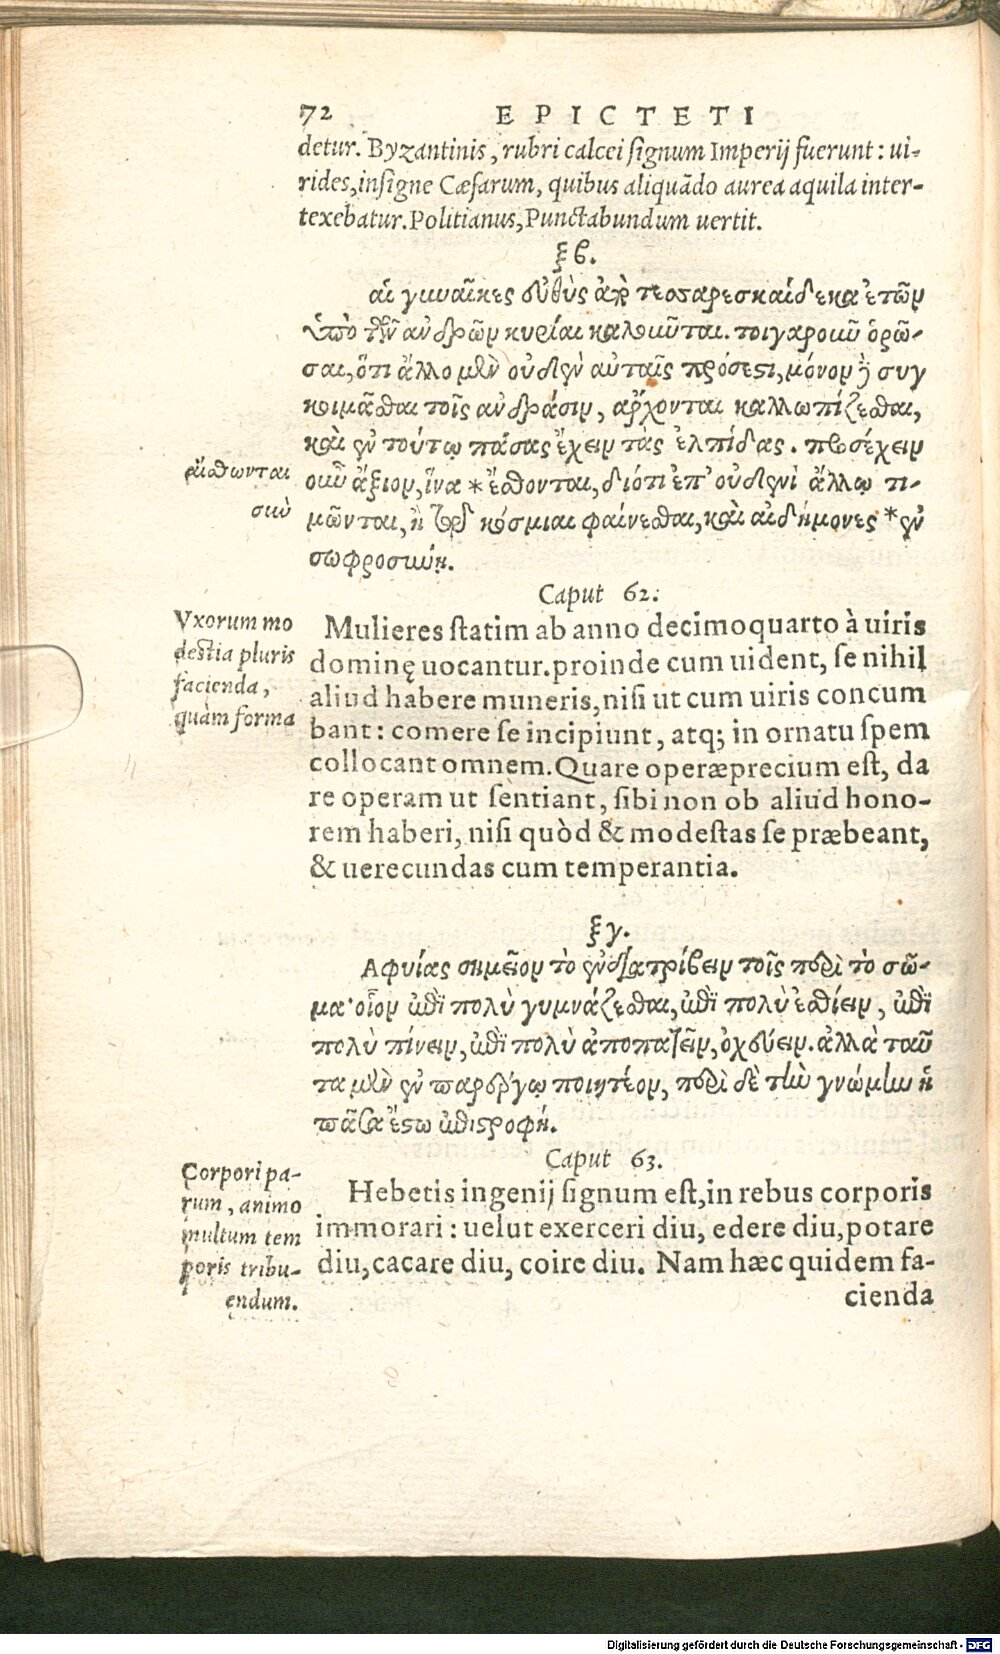 72 EPICTETI
detur. Byzantinis, rubri calcei signum Imperij fuerunt: ui-
rides, insigne Cæsarum, quibus aliquãdo aurea aquila inter-
texebatur. Politianus, Punctabundum uertit.
ξϐ.
αἱ γυναῖκες εὐθὺς ἀπὸ τεσσαρεσκαίδεκα ἐτῶν
ὑπὸ τῶν ἀνδρῶν κυρίαι καλοῦνται. τοιγαροῦν ὁρῶ-
σαι, ὅτι ἄλλο μὲν οὐδὲν αὐταῖς πρόσεστι, μόνον δὲ συγ
κοιμᾶσθαι τοῖς ἀνδράσιν, ἄρχονται καλλωπίζεσθαι,
καὶ ἐν τούτῳ πάσας ἔχειν τὰς ἐλπίδας. προσέχειν
αἴσθωνται
οὖν ἄξιον, ἵνα *ἔσθονται, διότι ἐπ' οὐδενὶ ἄλλῳ τι-
σὺν
μῶνται, ἢ τῷ κόσμιαι φαίνεσθαι, καὶ αἰδήμονες *ἐν
σωφροσύνῃ.
Caput 62.
Vxorum mo
destia pluris
facienda,
quàm forma
Mulieres statim ab anno decimoquarto à uiris
dominę uocantur. proinde cum uident, se nihil
aliud habere muneris, nisi ut cum uiris concum
bant: comere se incipiunt, atq; in ornatu spem
collocant omnem. Quare operæprecium est, da
re operam ut sentiant, sibi non ob aliud hono-
rem haberi, nisi quòd & modestas se præbeant,
& uerecundas cum temperantia.
ξγ.
Αφυίας σημεῖον τὸ ἐνδιατρίβειν τοῖς περὶ τὸ σῶ-
μα· οἷον ἐπὶ πολὺ γυμνάζεσθαι, ἐπὶ πολὺ ἐσθίειν, ἐπὶ
πολὺ πίνειν, ἐπὶ πολὺ ἀποπατεῖν, ὀχεύειν. ἀλλὰ ταῦ
τα μὲν ἐν παρέργῳ ποιητέον, περὶ δὲ τὴν γνώμην ἡ
πᾶσα ἔστω ἐπιστροφή.
Caput 63.
Corpori pa-
rum, animo
multum tem
poris tribu-
endum.
Hebetis ingenij signum est, in rebus corporis
immorari: uelut exerceri diu, edere diu, potare
diu, cacare diu, coire diu. Nam hæc quidem fa-
cienda
Digitalisierung gefördert durch die Deutsche Forschungsgemeinschaft - DFG